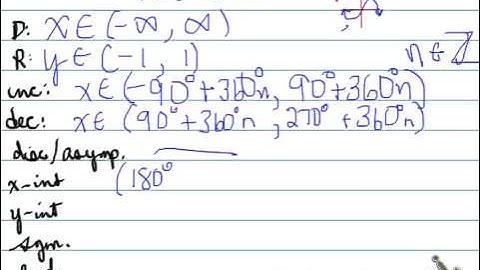 D: x∈(-∞, ∞)
R: y∈(-1, 1)
n∈ℤ
inc: x∈(-90°+360°n, 90°+360°n)
dec: x∈(90°+360°n, 270°+360°n)
disc/asymp.
x-int (180°
y-int
sym.